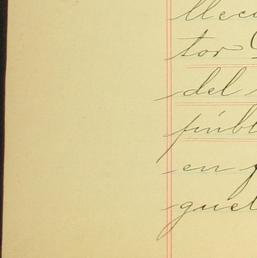 llec
tor
del
públ
en
guel